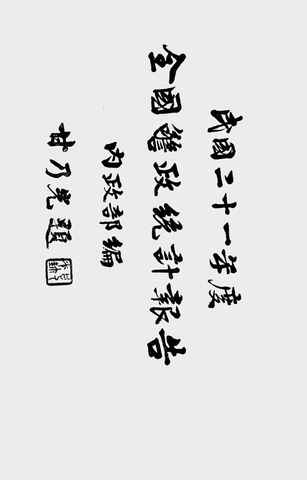 民國二十一年度
全國警政統計報告
內政部編
甘乃光題